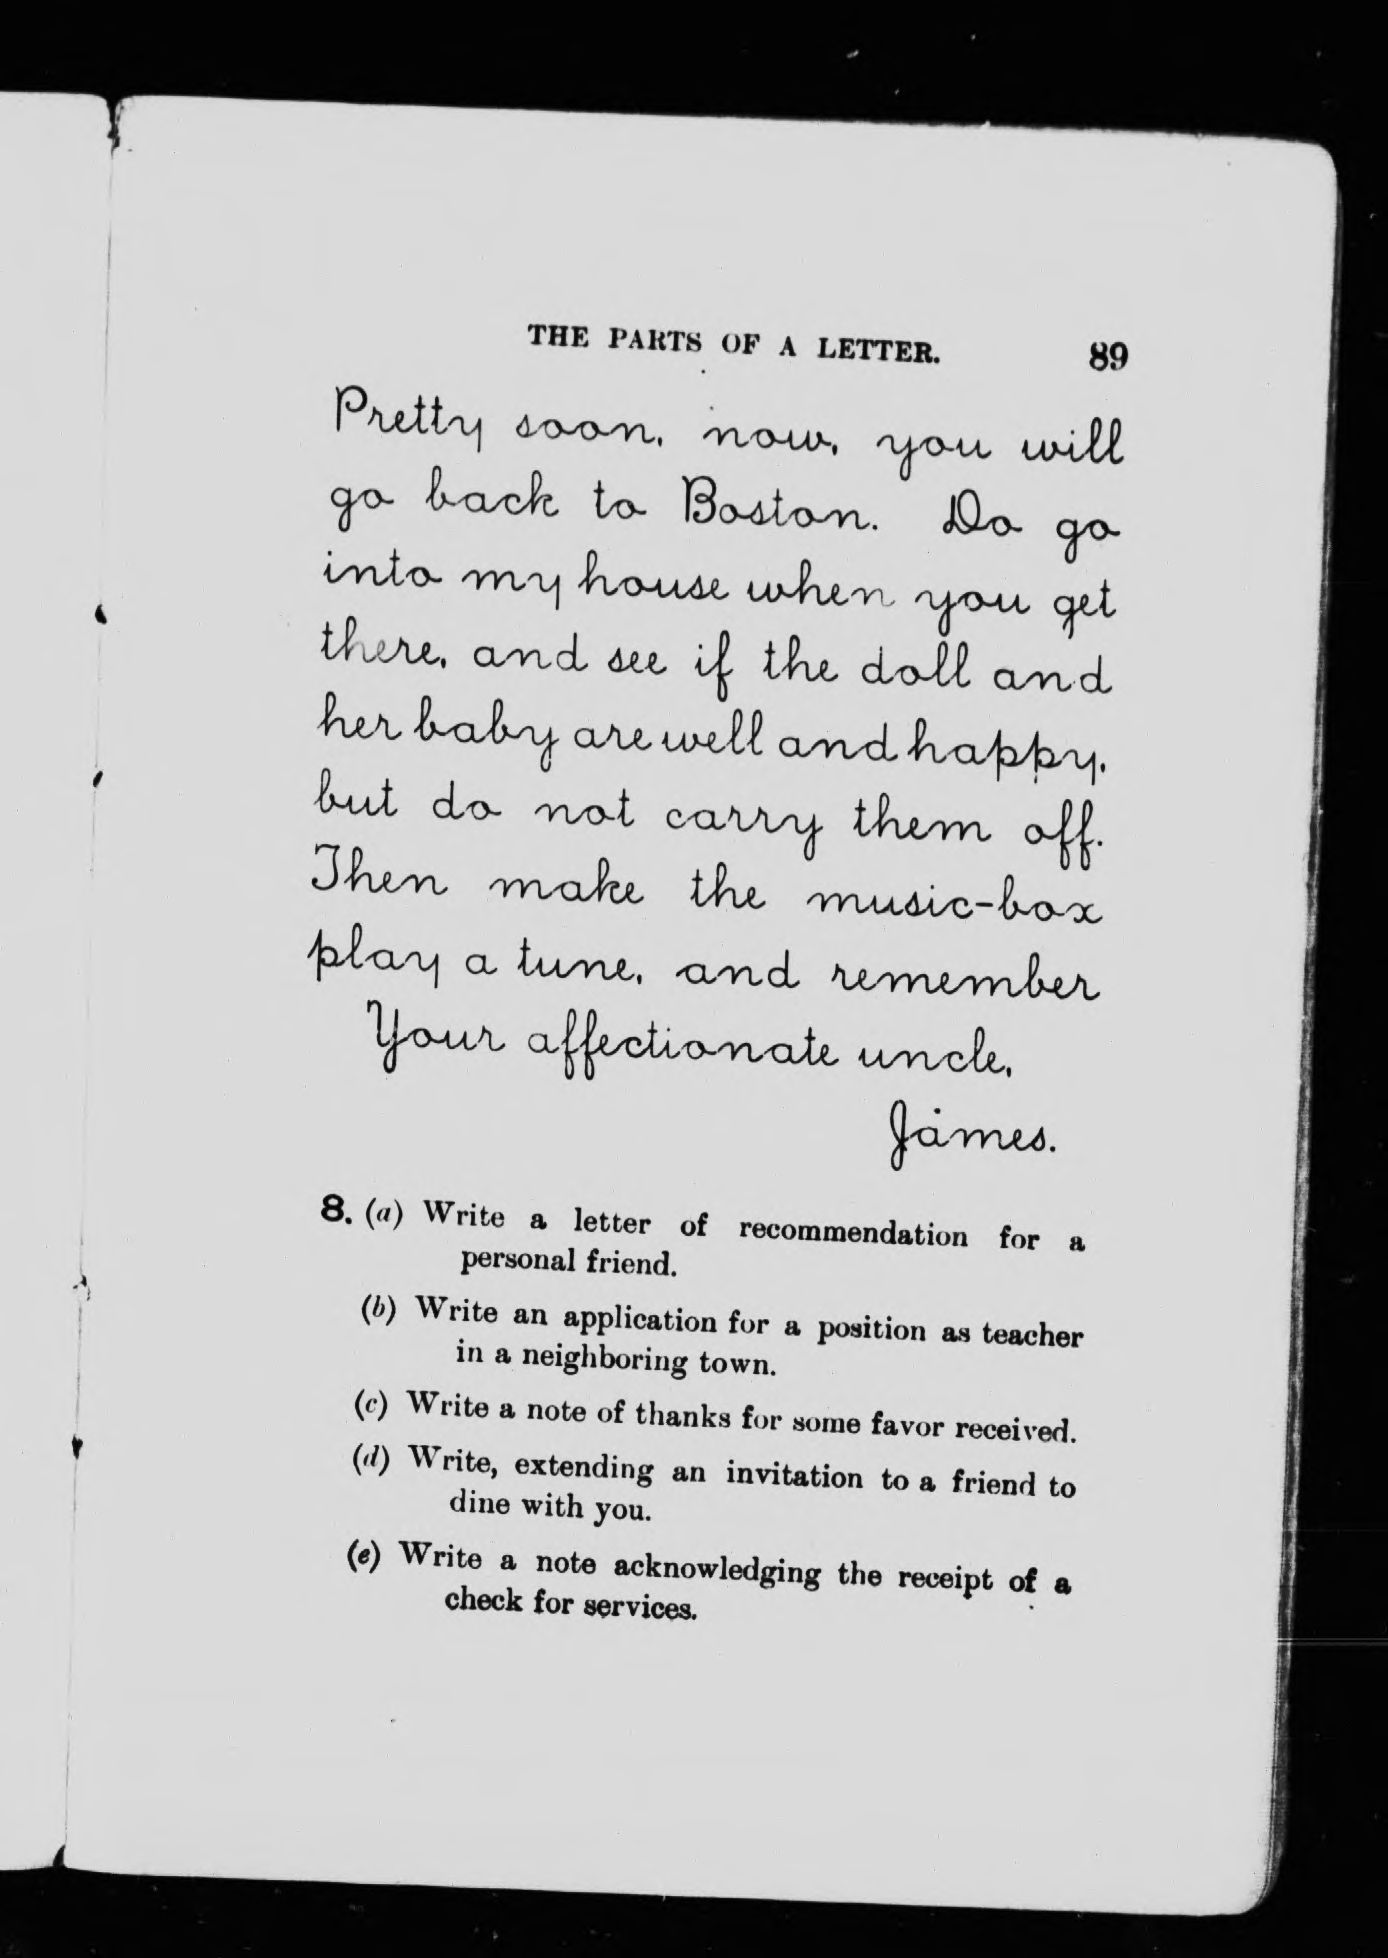 THE PARTS OF A LETTER. 89
Pretty soon, now, you will
go back to Boston. Do go
into my house when you get
there, and see if the doll and
her baby are well and happy,
but do not carry them off.
Then make the music-box
play a tune, and remember
Your affectionate uncle,
James.
8. (a) Write a letter of recommendation for a
personal friend.
(b) Write an application for a position as teacher
in a neighboring town.
(c) Write a note of thanks for some favor received.
(d) Write, extending an invitation to a friend to
dine with you.
(e) Write a note acknowledging the receipt of a
check for services.